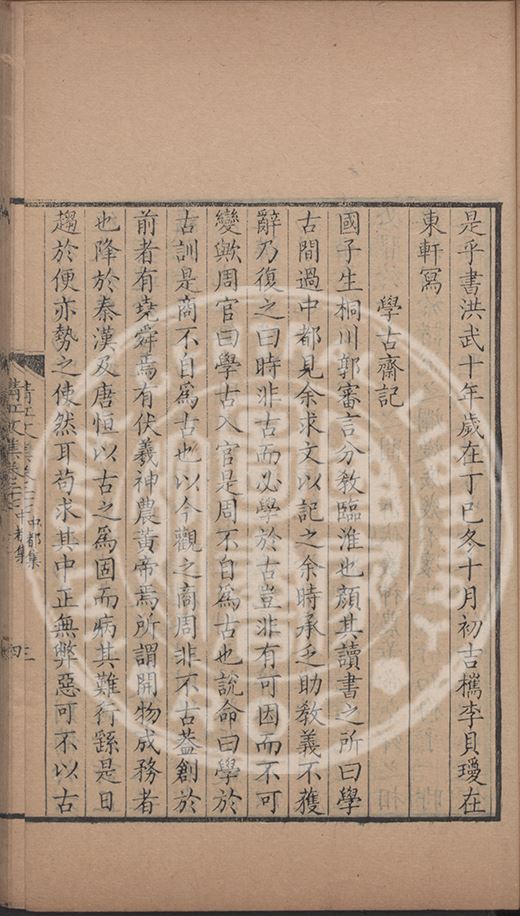 是乎書洪武十年歲在丁巳冬十月初吉檇李貝瓊在
東軒寫
學古齋記
國子生桐川郭審言分敎臨淮也顔其讀書之所曰學
古間過中都見余求文以記之余時承乏助敎義不獲
辭乃復之曰時非古而必學於古豈非有可因而不可
變歟周官曰學古入官是周不自爲古也說命曰學於
古訓是商不自爲古也以今觀之商周非不古葢創於
前者有堯舜焉有伏羲神農黃帝焉所謂開物成務者
也降於秦漢及唐恒以古之爲固而病其難行繇是日
趨於便亦勢之使然耳苟求其中正無弊惡可不以古
清江文集卷二十
中都集
三